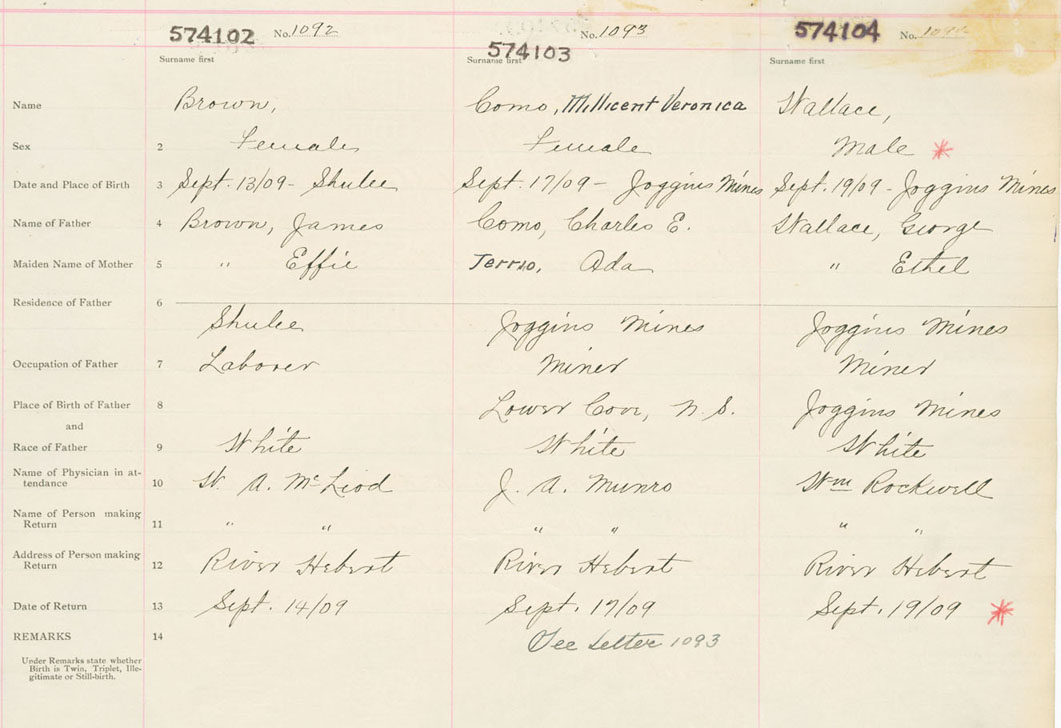 574102 No. 1092 574103 No. 1093 574104 No.
Surname first Surname first Surname first
Name Brown, Como, Millicent Veronica Wallace,
Sex 2 Female Female Male *
Date and Place of Birth 3 Sept. 13/09 - Shulee Sept. 17/09 - Joggins Mines Sept. 19/09 - Joggins Mines
Name of Father 4 Brown, James Como, Charles E. Wallace, George
Maiden Name of Mother 5 " Effie Terrio, Ada " Ethel
Residence of Father 6
Shulee Joggins Mines Joggins Mines
Occupation of Father 7 Laborer Miner Miner
Place of Birth of Father 8 Lower Cove, N. S. Joggins Mines
and
Race of Father 9 White White White
Name of Physician in at-
tendance 10 W. A. McLeod J. A. Munro Wm Rockwell
Name of Person making
Return 11 " " " " " "
Address of Person making
Return 12 River Hebert River Hebert River Hebert
Date of Return 13 Sept. 14/09 Sept. 17/09 Sept. 19/09 *
REMARKS 14 See Letter 1093
Under Remarks state whether
Birth is Twin, Triplet, Ille-
gitimate or Still-birth.